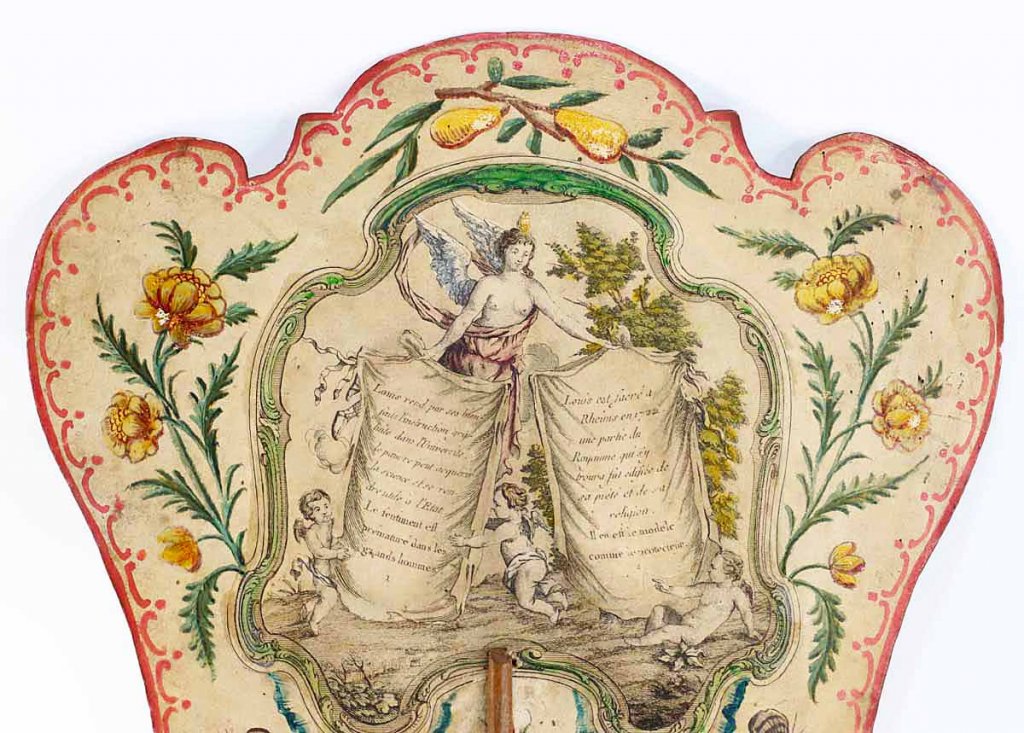 Louis rend par ses bien
faits l'instruction gra
tuite dans l'Université
le pauvre peut acquerir
la science et se ren
dre utile a l'Etat.
Le sentiment est
premature dans les
grands hommes.
1
Louis est sacré à
Rheims en 1722.
une partie du
Royaume qui s'y
trouva fut edifiée de
sa pieté et de sa
religion.
Il en est le modele
comme le protecteur.